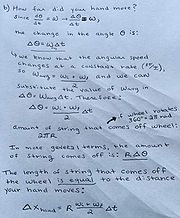 b) How far did your hand move?
Since dθ/dt = ω → Δθ/Δt = ω,
the change in the angle θ is:
Δθ = ωΔt
↳ we know that the angular speed
changes at a constant rate
so ωavg = (ωi + ωf)/2 and we can
substitute value of ωavg in
Δθ = ωavgΔt therefore:
Δθ = (ωi + ωf)/2 Δt
if wheel rotates
360° = 2π rad
amount of string that comes off wheel:
2πR
In more general terms, the amount
of string comes off is: RΔθ
The length of string that comes off
the wheel is equal to the distance
your hand moves:
Δxhand = R (ωi + ωf)/2 Δt